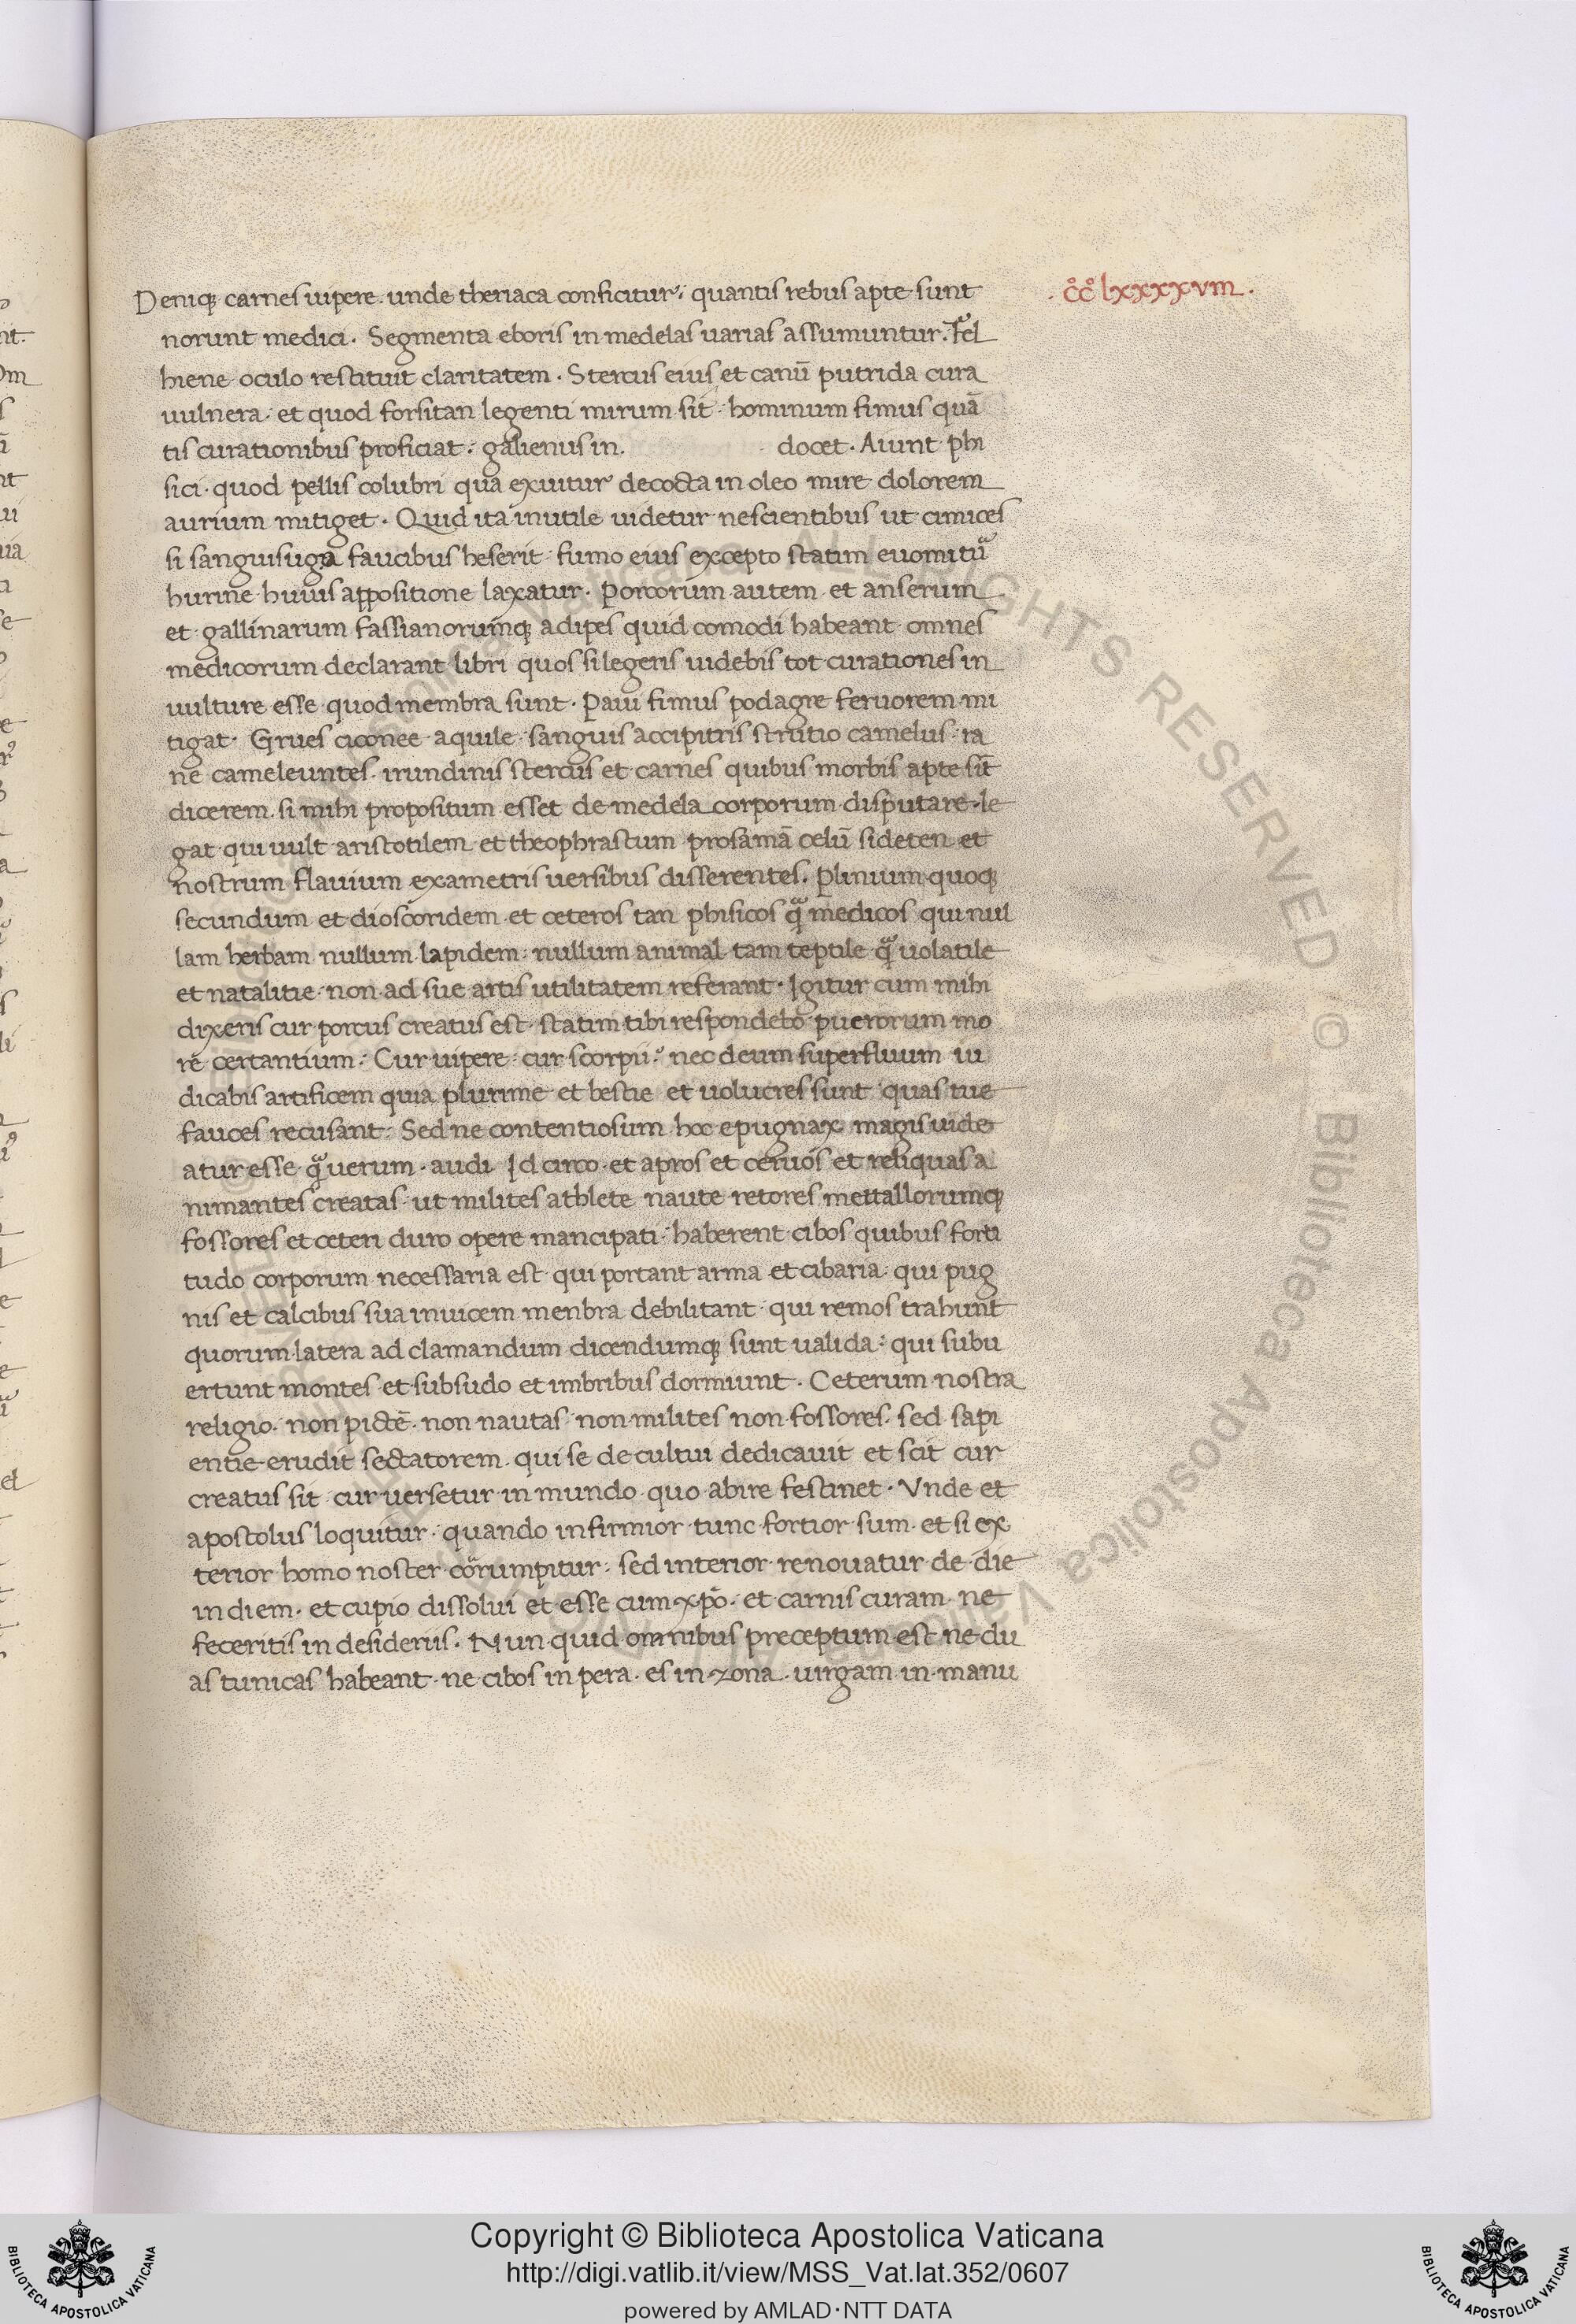 Deniq̃ carnes uipere. unde theriaca conficitur. quantis rebus apte sunt
. c̊c̊ lxxxxvııı .
norunt medici. Segmenta eboris in medelas uarias assumuntur. Fel
hiene oculo restituit claritatem. Stercus eius et canū putrida cura
uulnera. et quod forsitan legenti mirum sit. hominum fimus quā
tis curationibus proficiat. galienus in. docet. Aiunt phi
sici. quod pellis colubri qua exuitur decocta in oleo mire dolorem
aurium mitiget. Quid ita inutile uidetur nescientibus ut cimices
si sanguisuga faucibus heserit. fumo eius excepto statim euomitur̃
hurine huius appositione laxatur. Porcorum autem et anserum
et gallinarum fassianorumq̃ adipes quid comodi habeant omnes
medicorum declarant libri quos si legeris uidebis tot curationes in
uulture esse quod membra sunt. Paui fimus podagre feruorem mi
tigat. Grues ciconee aquile sanguis accipitris strutio camelus ra
ne cameleuntes. irundinis stercus et carnes quibus morbis apte sīt
dicerem. si mihi propositum esset de medela corporum disputare. le
gat qui uult aristotilem et theophrastum prosamā celū sideten et
nostrum flauium exametris uersibus disserentes. Plinium quoq̃
secundum et dioscoridem et ceteros tan phisicos q̃ medicos qui nul
lam herbam nullum lapidem. nullum animal tam teptile q̃ uolatile
et natalitie non ad sue artis utilitatem referant. Igitur cum mihi
dixeris cur porcus creatus est. statim tibi respondebo puerorum mo
re certantium. Cur uipere. cur scorpii. nec deum superfluum iu
dicabis artificem quia plurime et bestie et uolucres sunt quas tue
fauces recusant. Sed ne contentiosum hoc epugnax magis uide
atur esse q̃ uerum. audi Id circo et apros et ceruos et reliquas a
nimantes creatas ut milites athlete naute retores mettallorumq̃
fossores et ceteri duro opere mancipati. haberent cibos quibus forti
tudo corporum necessaria est qui portant arma et cibaria. qui pug
nis et calcibus sua inuicem menbra debilitant. qui remos trahunt
quorum latera ad clamandum dicendumq̃ sunt ualida. qui subu
ertunt montes et sub sudo et imbribus dormiunt. Ceterum nostra
religio. non pictē. non nautas non milites non fossores. sed sapi
entie erudit sectatorem. qui se de cultui dedicauit et scit cur
creatus sit cur uersetur in mundo quo abire festinet. Vnde et
apostolus loquitur. quando infirmior tunc fortior sum. et si ex
terior homo noster corrumpitur. sed interior renouatur de die
in diem. et cupio dissolui et esse cum xp̄o. et carnis curam ne
feceritis in desideriis. Nun quid omnibus preceptum est ne du
as tunicas habeant. ne cibos in pera. es in zona. uirgam in manu
Copyright © Biblioteca Apostolica Vaticana
http://digi.vatlib.it/view/MSS_Vat.lat.352/0607
powered by AMLAD·NTT DATA